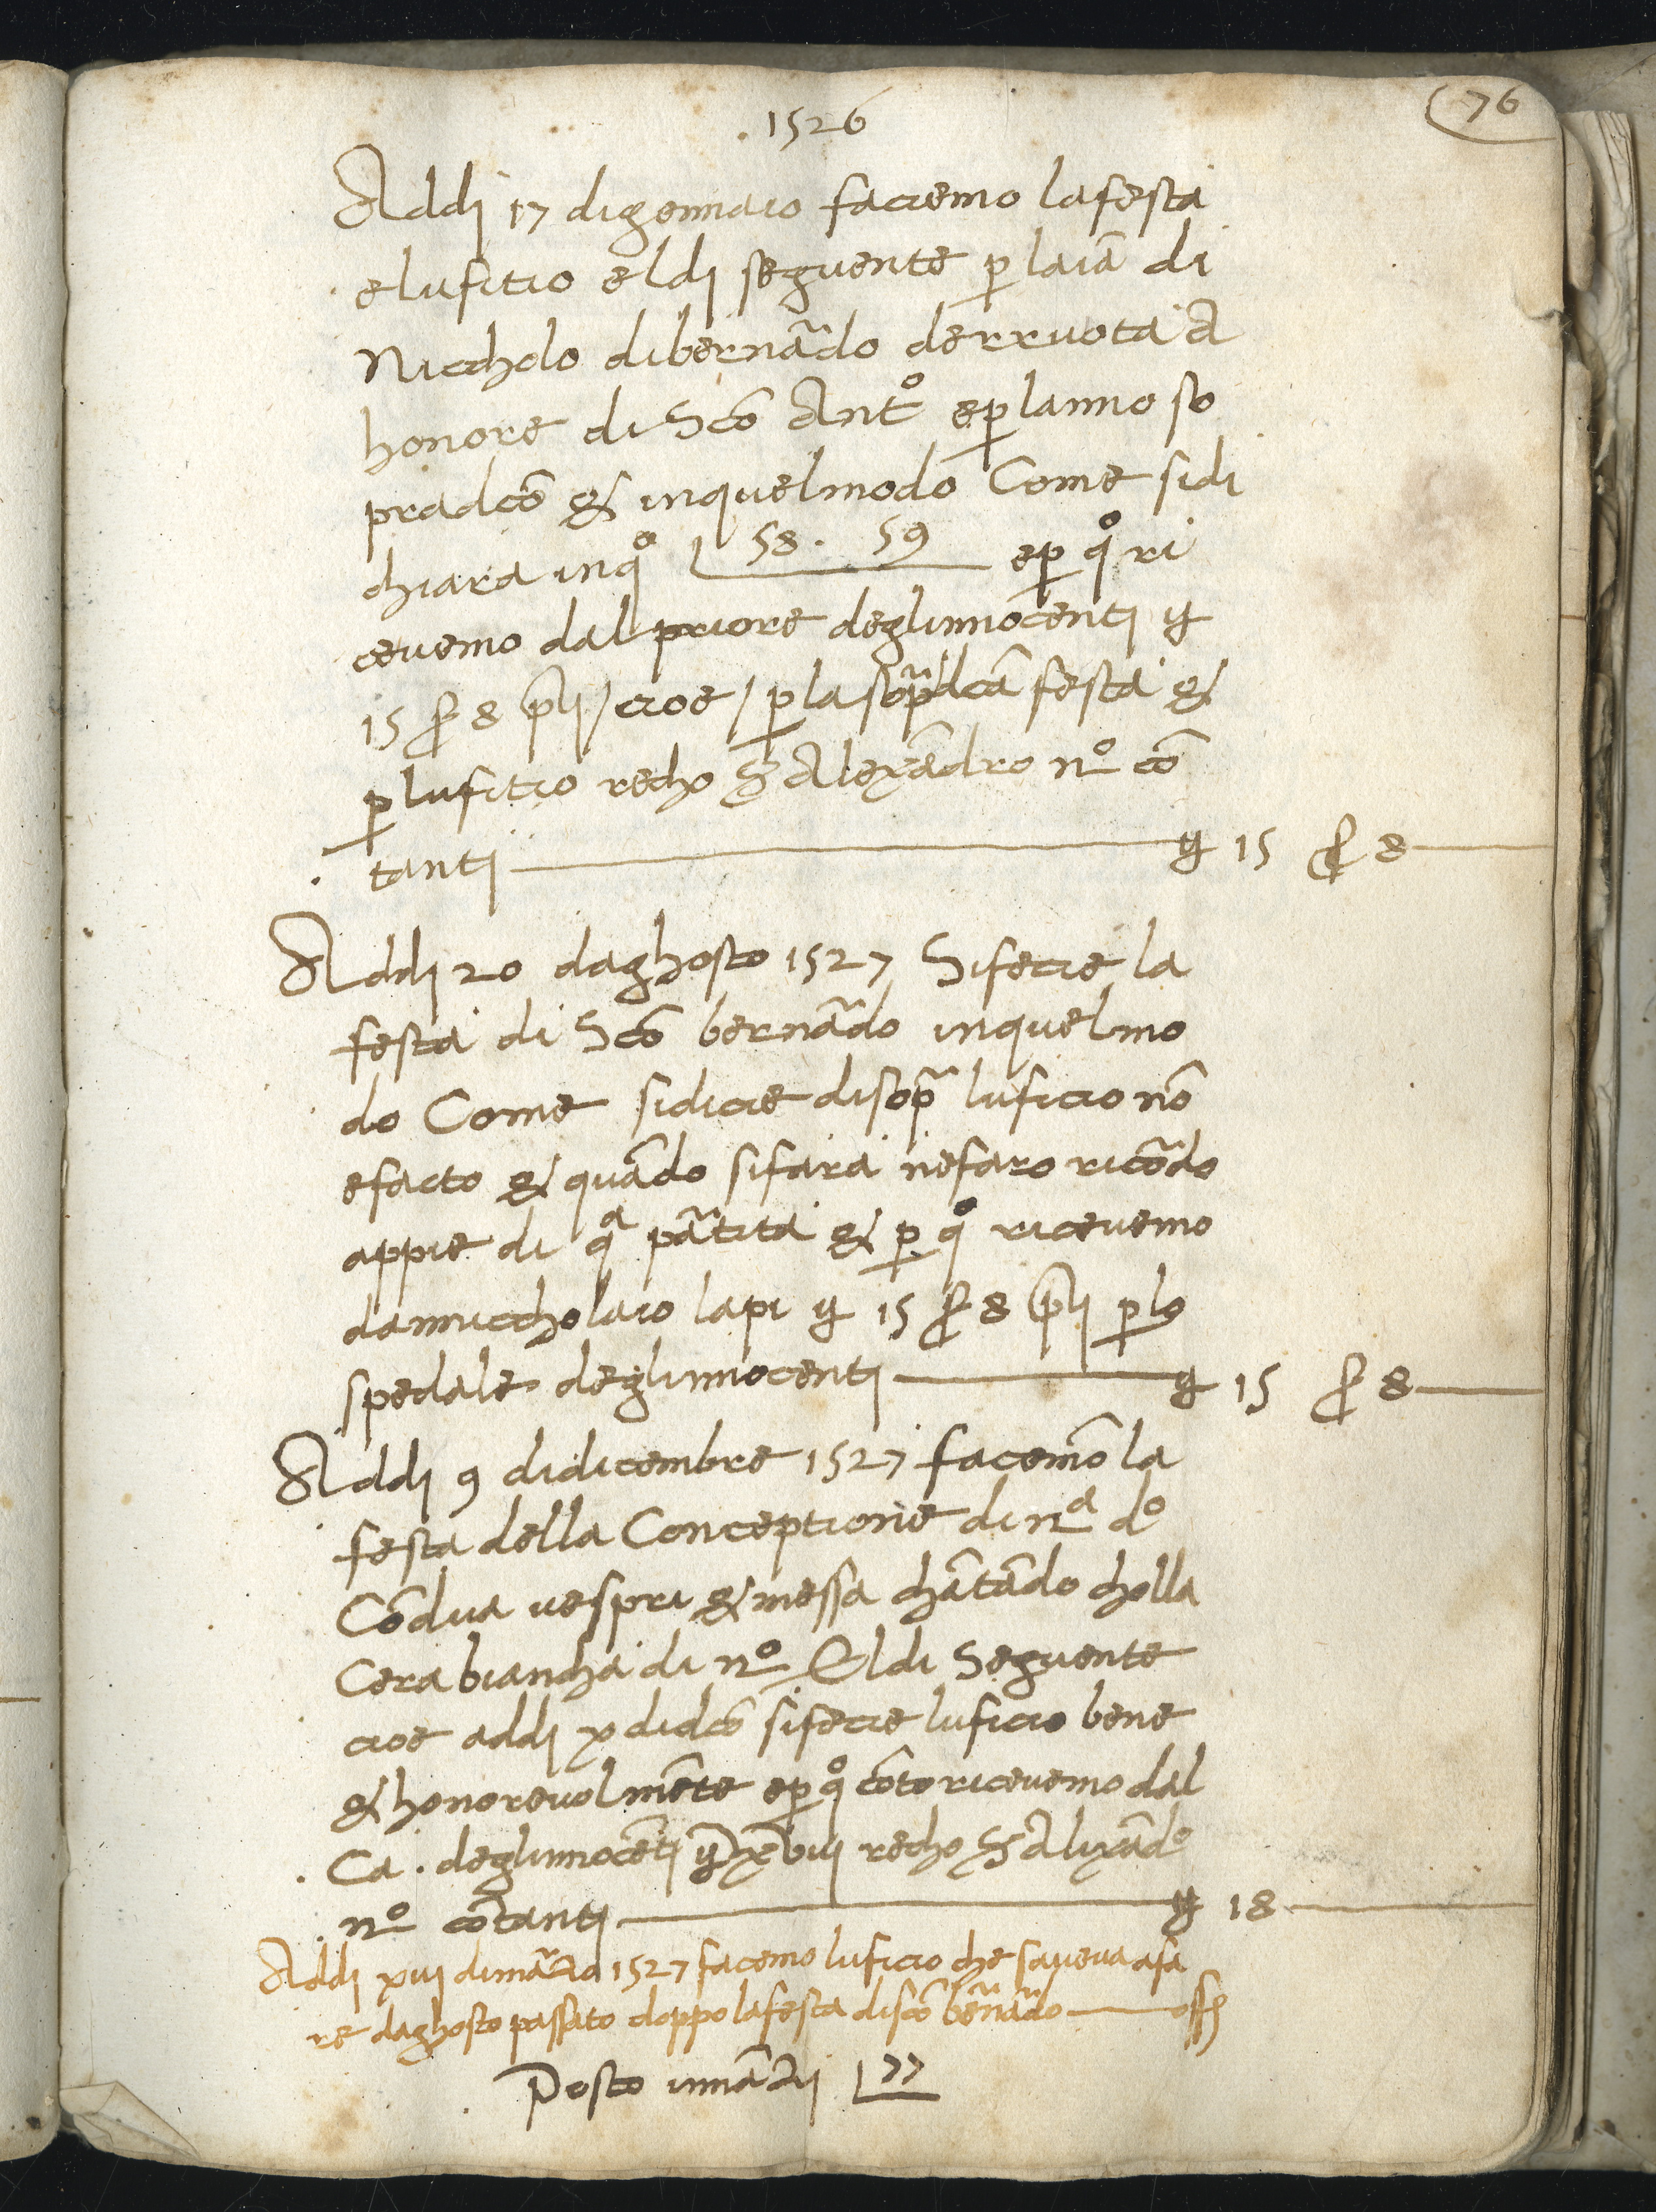 76
.1526
Addj 17 digennaio faciemo lafesta
elufitio eldj seguente p laīa di
Niccholo dibernādo derruota A
honore di Sc̄o Antº ep lanno so
pradc̄o & inquelmodo Come sidi
chiara inqº 58. 59 ep qº ri
cevemo dal priore deglinnocentj
15 8 pli / cioe / p la sop̄adc̄a festa &
p lufitio recho Alexādro nº cō
tantj 15 8
Addj 20 daghosto 1527 Sifecie la
festa di Sc̄o bernādo inquelmo
do Come sidicie disop̄ luficio nō
efacto & quādo sifara nefaro ricōdo
appie di qª pātita & p qº ricevemo
danniccholaio lapi 15 8 pli p lo
spedale deglinnocentj 15 8
Addj 9 didicembre 1527 facemō la
festa della Conceptione di nª dº
Cōdua vespri & messa chātādo cholla
Cera biancha di nº Eldi Seguente
cioe addj x didc̄o sifecie luficio bene
& honorevolmēte ep qº cōto ricevemo dal
Ca. deglinnocētj xviij recho Alixādº
nº cōtantj 18
Addj xvij dimāzo 1527 facemo luficio che saveva afa
re daghosto passato doppo lafesta disc̄o bēnādo
Posto innāzj 77